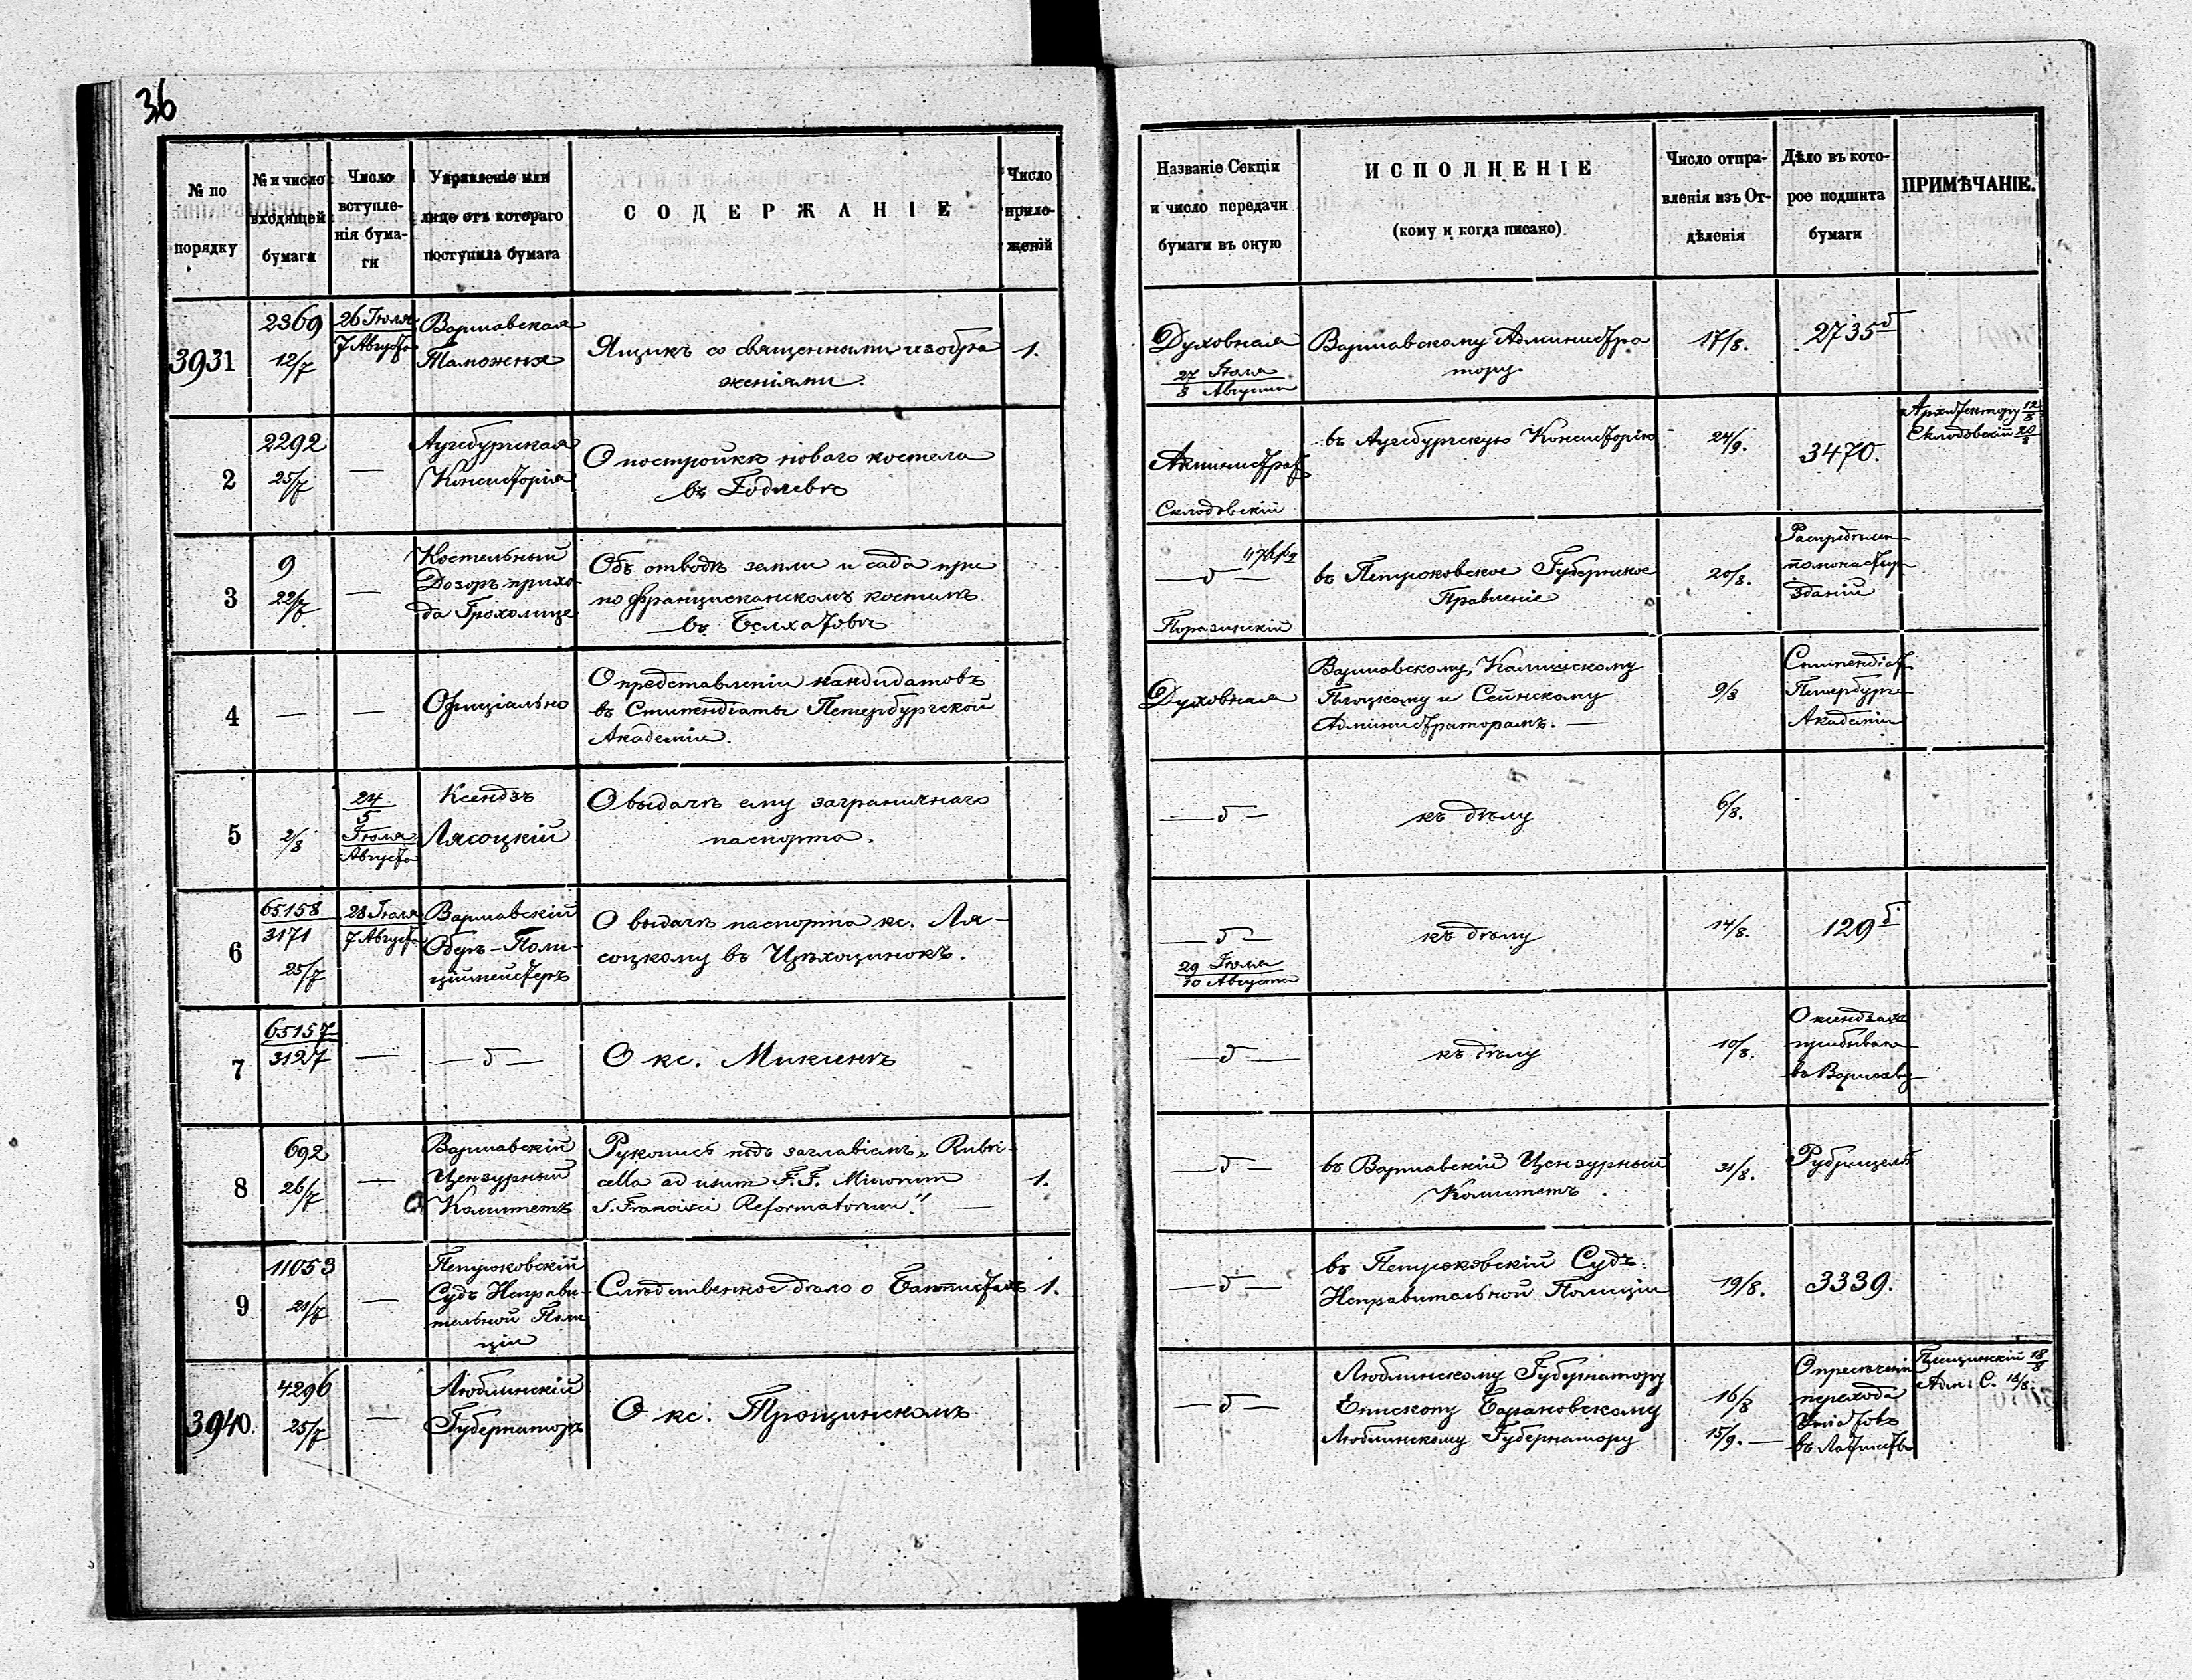 36
№ по порядку
№ и число входящей бумаги
Число вступле-
нія бума-
ги
Управленіе или
лице отъ котораго
поступила бумага
СОДЕРЖАНІЕ
Число
прило-
женій
Названіе Секціи
и число передачи
бумаги въ оную
ИСПОЛНЕНІЕ
(кому и когда писано).
Число отпра-
вленія изъ От-
дѣленія
Дѣло въ кото-
рое подшита
бумаги
ПРИМѢЧАНІЕ.
3931
2369
12/7
26 Іюля
7 Августа
Варшавская
Таможня
Ящикъ со священными изобра
женіями.
1.
Духовная
27 Іюля
8 Августа
Варшавскому Администра
тору.
17/8.
2735 б
2
2292
25/7
—
Аугсбургская
Консисторія
О постройкѣ новаго костела
въ Годлевѣ
Администрат
Склодовскій
въ Аугсбургскую Консисторію
24/9.
3470.
Архитектору 12/8
Склодовскій 20/8
3
9
22/7
—
Костельный
Дозоръ прихо-
да Грохолице
Объ отводѣ земли и сада при
по францисканскомъ костелѣ
въ Белхатовѣ
— д —
Поразинскій
въ Петроковское Губернское
Правленіе
20/8.
Распредѣлен
помонастыр
зданій
4
—
—
Офиціально
О представленіи кандидатовъ
въ Стипендіаты Петербургской
Академіи.
Духовная
Варшавскому, Калишскому
Плоцкому и Сейнскому
Администраторамъ. —
9/8
Стипендіат
Петербургс
Академіи
5
2/8
24
5
Іюля
Августа
Ксендзъ
Лясоцкій
О выдачѣ ему заграничнаго
паспорта.
— д —
къ дѣлу
6/8.
6
65158
3171
25/7
28 Іюля
7 Августа
Варшавскій
Оберъ-Поли-
ціймейстеръ
О выдачѣ паспорта кс. Ля-
соцкому въ Цѣхоцинокъ.
— д —
29 Іюля
10 Августа
къ дѣлу
14/8.
129 б
7
65157
3127
—
— д —
О кс. Микинѣ
— д —
къ дѣлу
10/8.
О ксендзахъ
прибыва
въ Варшаву
8
692
26/7
—
Варшавскій
Цензурный
Комитетъ
Рукопись подъ заглавіемъ „Rubri-
cella ad usum F.F. Minorum
S. Francisci Reformatorum." —
1.
— д —
въ Варшавскій Цензурный
Комитетъ.
31/8.
Рубрицелѣ
9
11053
21/7
—
Петроковскій
Судъ Исправи-
тельной Поли
ціи
Слѣдственное дѣло о Баптистахъ
1.
— д —
въ Петроковскій Судъ
Исправительной Полиціи
19/8.
3339.
3940.
4296
25/7
—
Люблинскій
Губернаторъ
О кс. Трощинскомъ
— д —
Люблинскому Губернатору
Епископу Барановскому
Люблинскому Губернатору
16/8
15/9. —
О пресѣченіи
перехода
Уніатовъ
въ Латинство
18/8
Адм: С. 18/8.